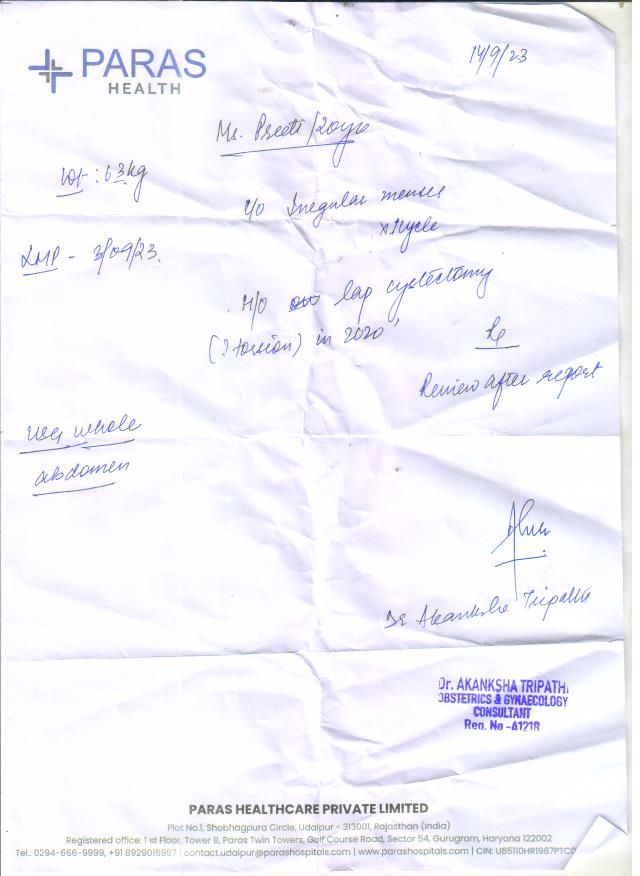 PARAS
HEALTH
14/9/23
Ms. Preeti /20yrs
wt : 63kg
c/o Irregular menses
x1cycle
LMP - 3/09/23.
H/o lap cystectomy
(? torsion) in 2020
Rx
Review after report
USG whole
abdomen
Dr Akanksha Tripathi
Dr. AKANKSHA TRIPATHI
OBSTETRICS & GYNAECOLOGY
CONSULTANT
Reg. No -41218
PARAS HEALTHCARE PRIVATE LIMITED
Plot No.1, Shobhagpura Circle, Udaipur - 313001, Rajasthan (India)
Registered office: 1 st Floor, Tower B, Paras Twin Towers, Golf Course Road, Sector 54, Gurugram, Haryana 122002
Tel.: 0294-666-9999, +91 8929016897 | contact.udaipur@parashospitals.com | www.parashospitals.com | CIN: U85110HR1987PTC0